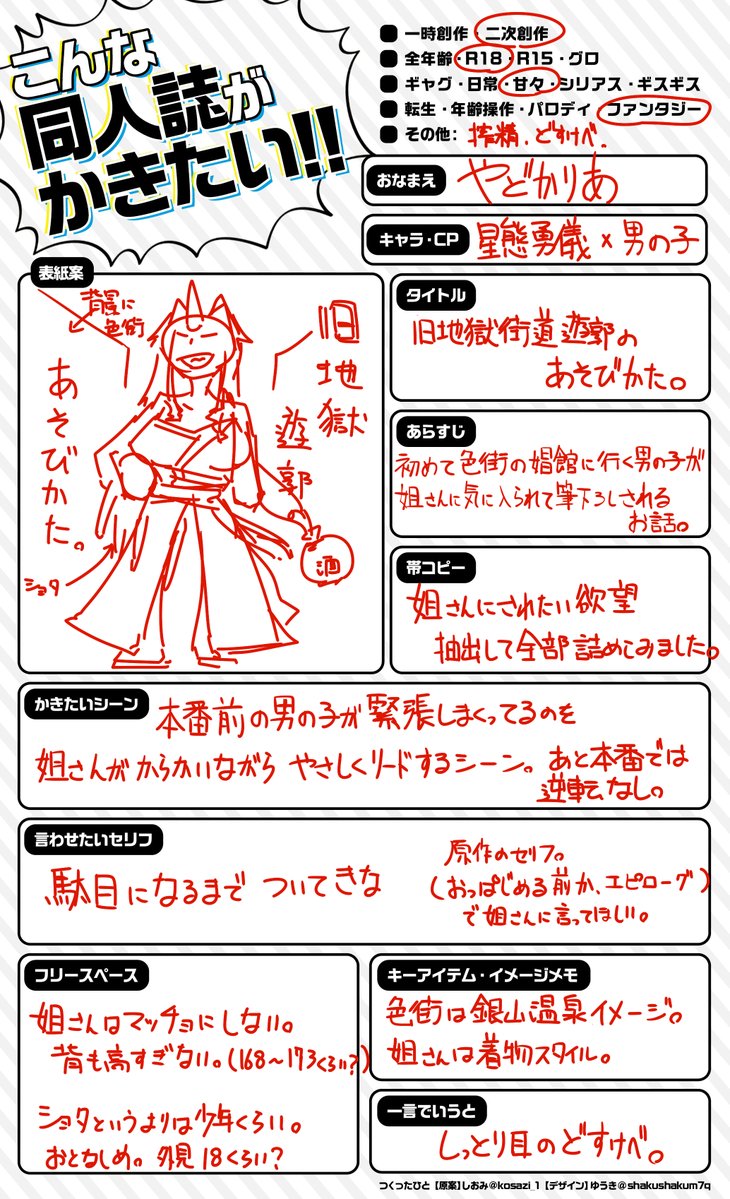 こんな
同人誌が
かきたい!!
一時創作・二次創作
全年齢・R18・R15・グロ
ギャグ・日常・甘々・シリアス・ギスギス
転生・年齢操作・パロディ ファンタジー
その他: 搾精、どすけべ.
おなまえ
やどかりあ
キャラ・CP
星熊勇儀×男の子
表紙案
背景に
色街
旧地獄遊郭
あそびかた。
ショタ
酒
タイトル
旧地獄街道遊郭の
あそびかた。
あらすじ
初めて色街の娼館に行く男の子が
姐さんに気に入られて筆下ろしされる
お話。
帯コピー
姐さんにされたい欲望
抽出して全部詰めこみました。
かきたいシーン
本番前の男の子が緊張しまくってるのを
姐さんがからかいながら やさしくリードするシーン。あと本番では
逆転なし。
言わせたいセリフ
駄目になるまで ついてきな
原作のセリフ。
(おっぱじめる前か、エピローグ)
で姐さんに言ってほしい。
フリースペース
姐さんはマッチョにしない。
背も高すぎない。(168〜173くらい?)
ショタというよりは少年くらい。
おとなしめ。外見18くらい?
キーアイテム・イメージメモ
色街は銀山温泉イメージ。
姐さんは着物スタイル。
一言でいうと
しっとり目のどすけべ。
つくったひと【原案】しおみ@kosazi_1【デザイン】ゆうき@shakushakum7q